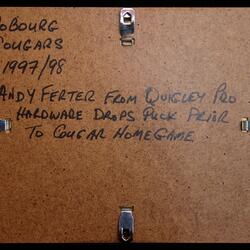 COBOURG
COUGARS
1997/98
ANDY FERTER FROM QUIGLEY PRO
HARDWARE DROPS PUCK PRIOR
TO COUGAR HOME GAME